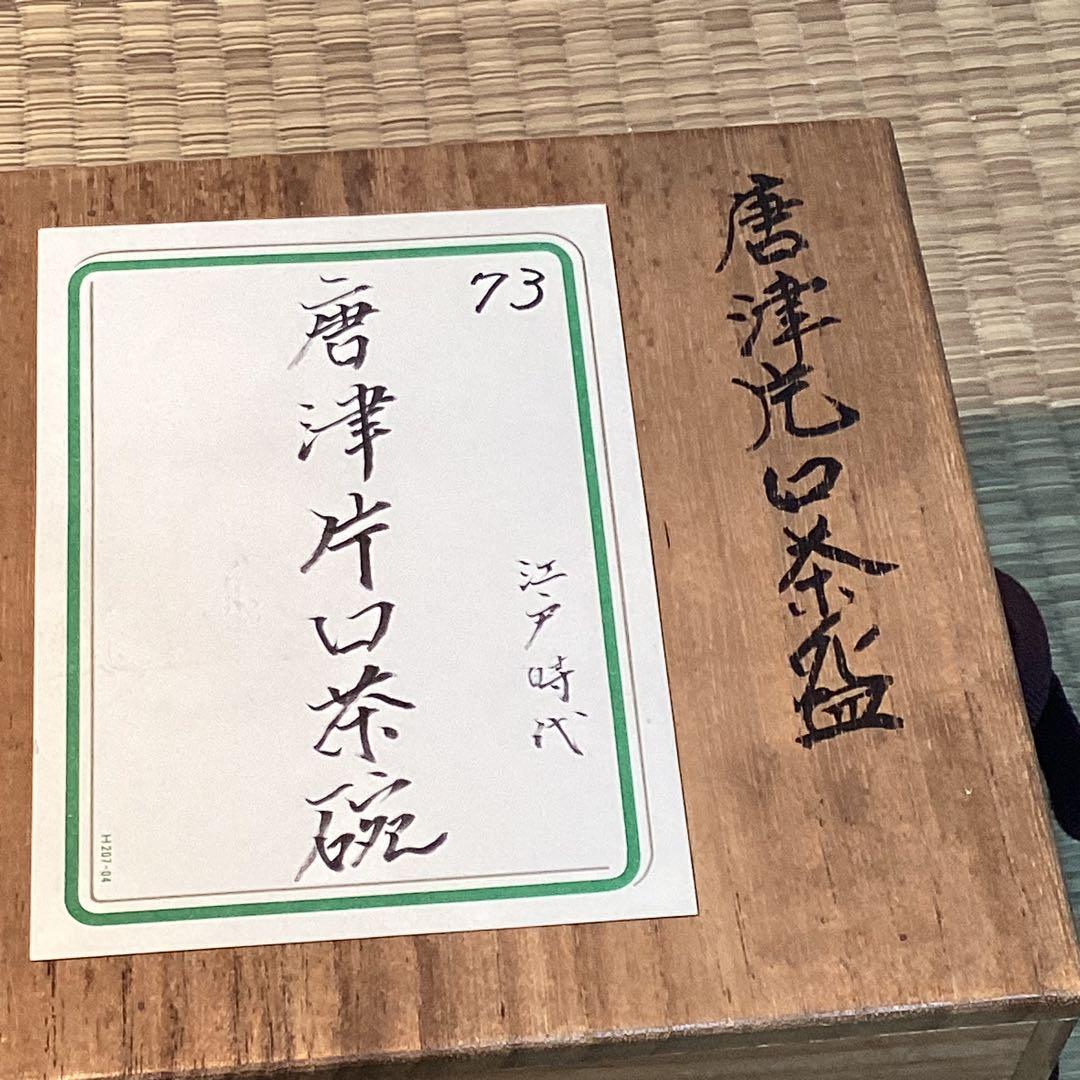 唐津片口茶盌
73
江戸時代
唐津片口茶碗
H207-04